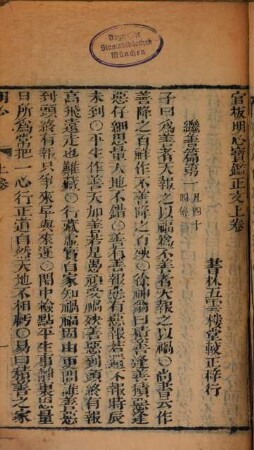 官板明心寶鑑正文上卷
書林五雲樓堂較正梓行
繼善篇第一
凡四十
四條
子曰爲善者天報之以福爲不善者天報之以禍○尚書云作
善降之百祥作不善降之百殃○徐神翁曰積善逢善積惡逢
惡仔細思量天地不錯○善有善報惡有惡報若還不報時辰
未到○平生作善天加善若是愚頑受禍殃善惡到頭終有報
高飛遠走也難藏○行藏虛實自家知禍福因由更問誰善惡
到頭終有報只爭來早與來遲○閑中檢點平生事靜裏思量
日所爲常把一心行正道自然天地不相虧○易曰積善之家
明心
上卷
Bayerische
Staatsbibliothek
München